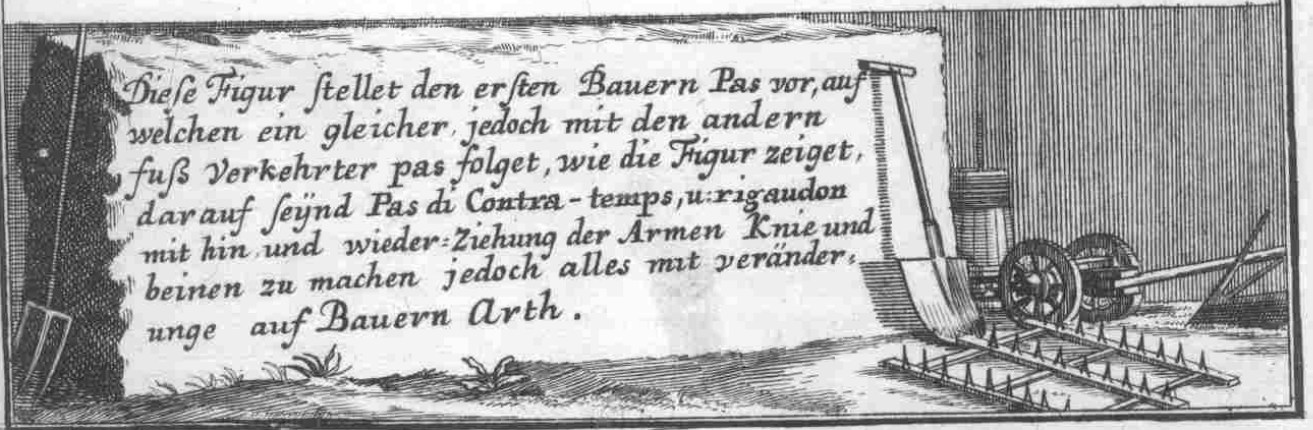 Diese Figur stellet den ersten Bauern Pas vor, auf
welchen ein gleicher, jedoch mit den andern
fuß Verkehrter pas folget, wie die Figur zeiget,
darauf seÿnd Pas di Contra-temps, u: rigaudon
mit hin und wieder=Ziehung der Armen Knie und
beinen zu machen jedoch alles mit veränder=
unge auf Bauern Arth.